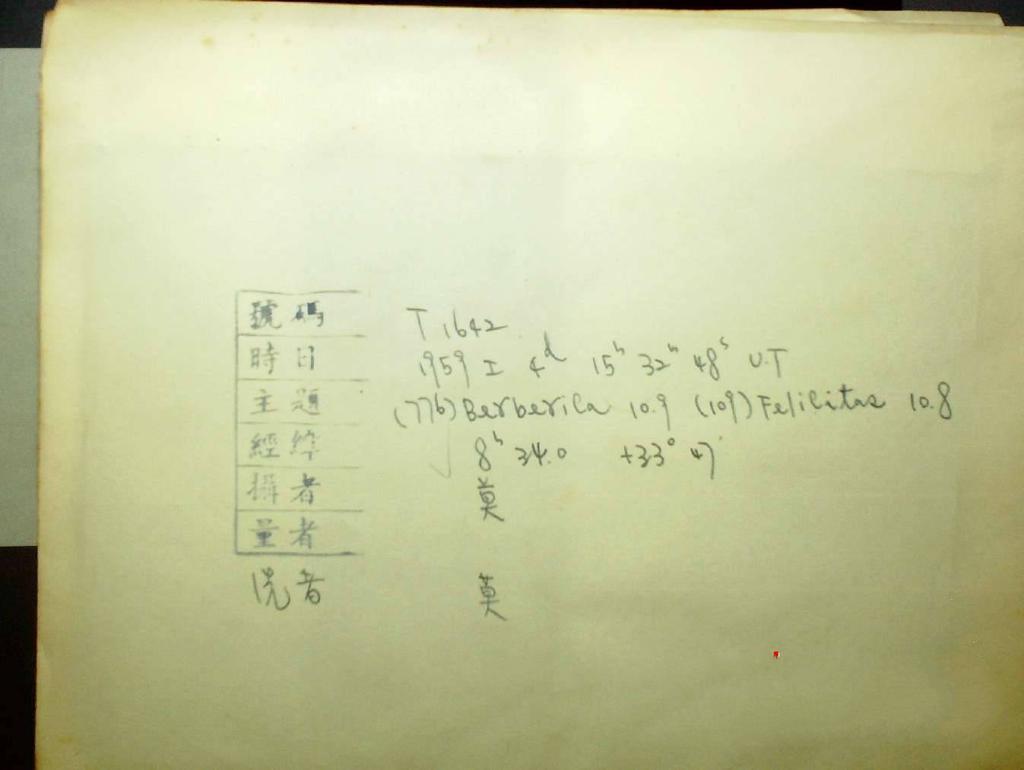 號碼 T 1642
時日 1959 I 4d 15h 32m 48s U.T
主題 (776) Berberica 10.9 (109) Felicitas 10.8
經緯 8h 34.0 +33° 47'
攝者 莫
量者
洗者 莫